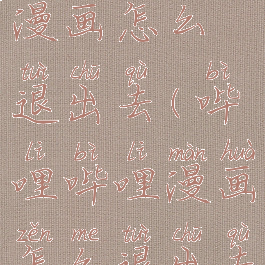 漫画怎么
tuì chū qù bì
退出去(哔
lī bì lī màn huà
哩哔哩漫画
zěn me tuì chū qù
怎么退出去